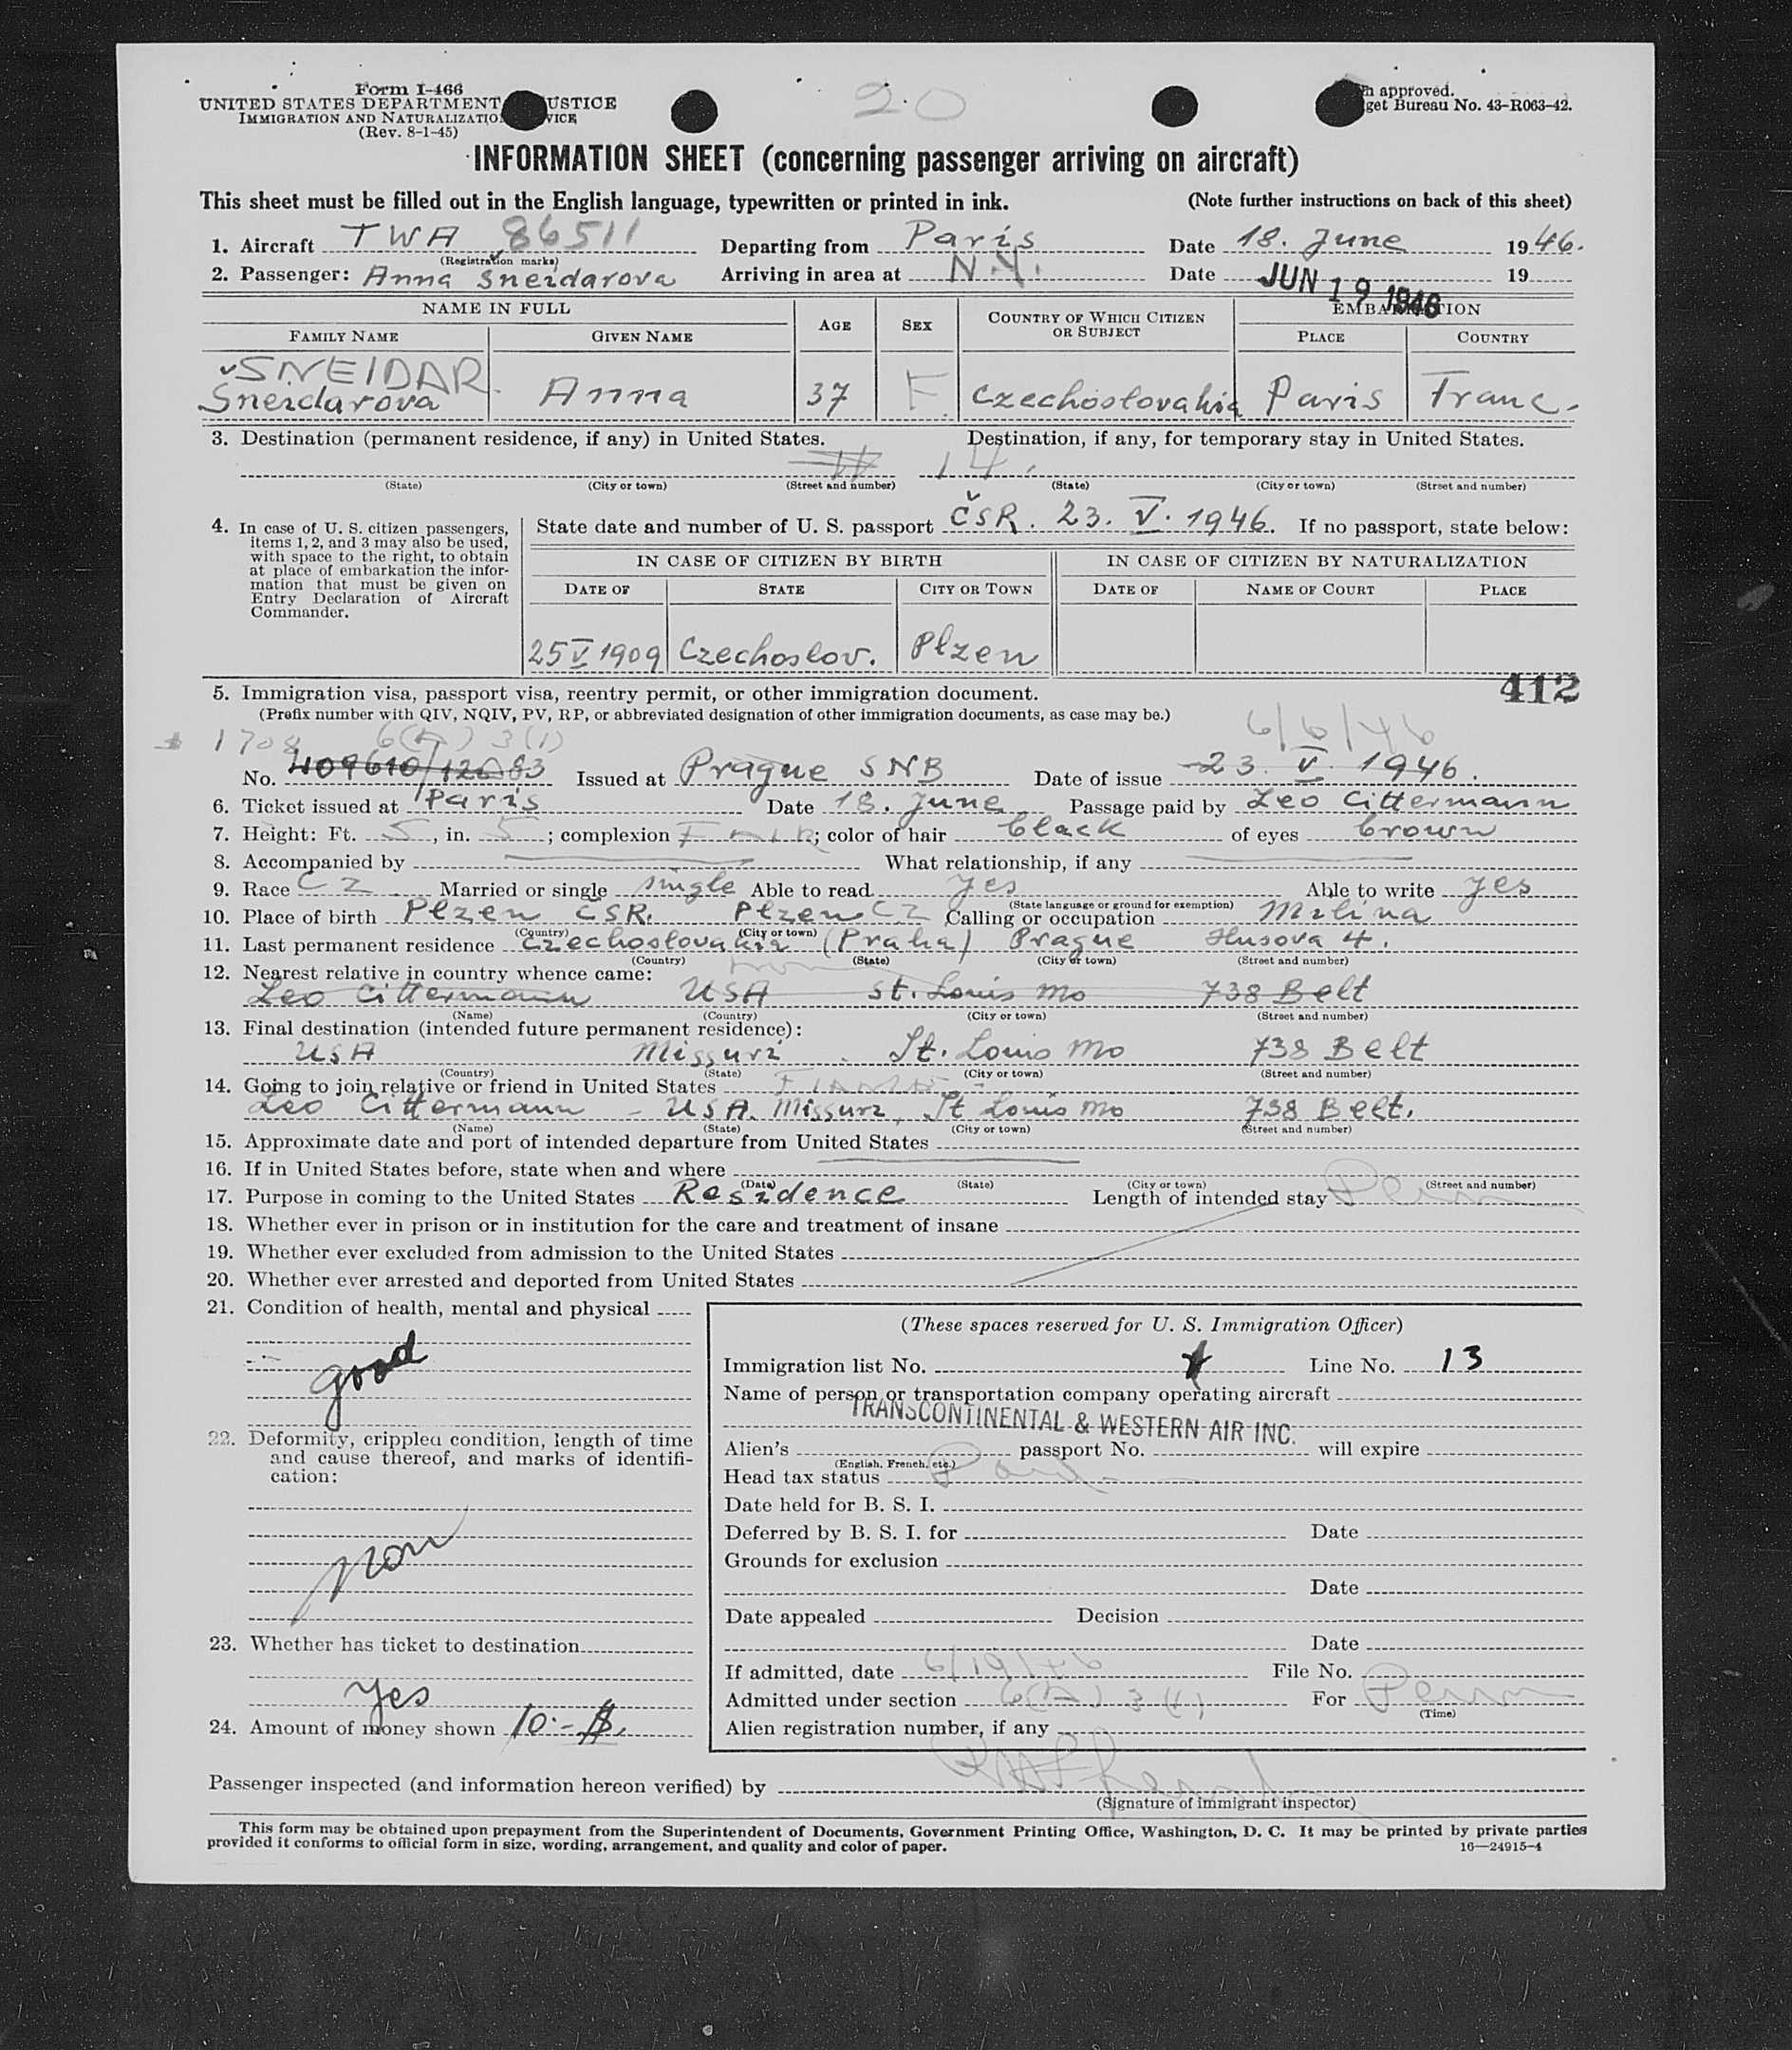 Form I-466
UNITED STATES DEPARTMENT USTICE
IMMIGRATION AND NATURALIZATIO VICE
(Rev. 8-1-45)
20
approved.
get Bureau No. 43-R063-42.
INFORMATION SHEET (concerning passenger arriving on aircraft)
This sheet must be filled out in the English language, typewritten or printed in ink. (Note further instructions on back of this sheet)
1. Aircraft TWA 86511 Departing from Paris Date 18. June 1946.
(Registration marks)
2. Passenger: Anna Sneidarova Arriving in area at N.Y. Date JUN 19 1946 19
NAME IN FULL AGE SEX COUNTRY OF WHICH CITIZEN OR SUBJECT EMBARKATION
FAMILY NAME GIVEN NAME PLACE COUNTRY
SNEIDAR
Sneidarova Anna 37 F Czechoslovakia Paris Franc.
3. Destination (permanent residence, if any) in United States. Destination, if any, for temporary stay in United States.
(State) (City or town) (Street and number) (State) (City or town) (Street and number)
4. In case of U. S. citizen passengers, items 1, 2, and 3 may also be used, with space to the right, to obtain at place of embarkation the information that must be given on Entry Declaration of Aircraft Commander.
State date and number of U. S. passport ČSR. 23. V. 1946. If no passport, state below:
IN CASE OF CITIZEN BY BIRTH IN CASE OF CITIZEN BY NATURALIZATION
DATE OF STATE CITY OR TOWN DATE OF NAME OF COURT PLACE
25 V 1909 Czechoslov. Plzen
412
5. Immigration visa, passport visa, reentry permit, or other immigration document.
(Prefix number with QIV, NQIV, PV, RP, or abbreviated designation of other immigration documents, as case may be.)
1708 6(A) 3(1) 6/6/46
No. 409610/12683 Issued at Prague SNB Date of issue 23. V. 1946.
6. Ticket issued at Paris Date 18. June Passage paid by Leo Cittermann
7. Height: Ft. 5, in. 5; complexion FAIR; color of hair black of eyes brown
8. Accompanied by What relationship, if any
9. Race CZ Married or single single Able to read yes Able to write yes
(State language or ground for exemption)
10. Place of birth Plzen ČSR. Plzen CZ Calling or occupation Milina
(Country) (City or town)
11. Last permanent residence Czechoslovakia (Praha) Prague Husova 4.
(Country) (State) (City or town) (Street and number)
12. Nearest relative in country whence came:
Leo Cittermann USA St. Louis Mo 738 Belt
(Name) (Country) (City or town) (Street and number)
13. Final destination (intended future permanent residence):
USA Missuri St. Louis Mo 738 Belt
(Country) (State) (City or town) (Street and number)
14. Going to join relative or friend in United States
Leo Cittermann - USA. Missuri, St Louis Mo 738 Belt.
(Name) (State) (City or town) (Street and number)
15. Approximate date and port of intended departure from United States
16. If in United States before, state when and where
(Date) (State) (City or town) (Street and number)
17. Purpose in coming to the United States Residence Length of intended stay Perm
18. Whether ever in prison or in institution for the care and treatment of insane
19. Whether ever excluded from admission to the United States
20. Whether ever arrested and deported from United States
21. Condition of health, mental and physical
good
22. Deformity, crippled condition, length of time and cause thereof, and marks of identification:
non
23. Whether has ticket to destination
yes
24. Amount of money shown 10.- $
(These spaces reserved for U. S. Immigration Officer)
Immigration list No. Line No. 13
Name of person or transportation company operating aircraft
TRANSCONTINENTAL & WESTERN AIR INC.
Alien's passport No. will expire
(English, French, etc.)
Head tax status Paid
Date held for B. S. I.
Deferred by B. S. I. for Date
Grounds for exclusion
Date
Date appealed Decision
Date
If admitted, date 6/19/46 File No.
Admitted under section 6(A) 3(1) For Perm
(Time)
Alien registration number, if any
Passenger inspected (and information hereon verified) by
(Signature of immigrant inspector)
This form may be obtained upon prepayment from the Superintendent of Documents, Government Printing Office, Washington, D. C. It may be printed by private parties
provided it conforms to official form in size, wording, arrangement, and quality and color of paper. 16—24915-4